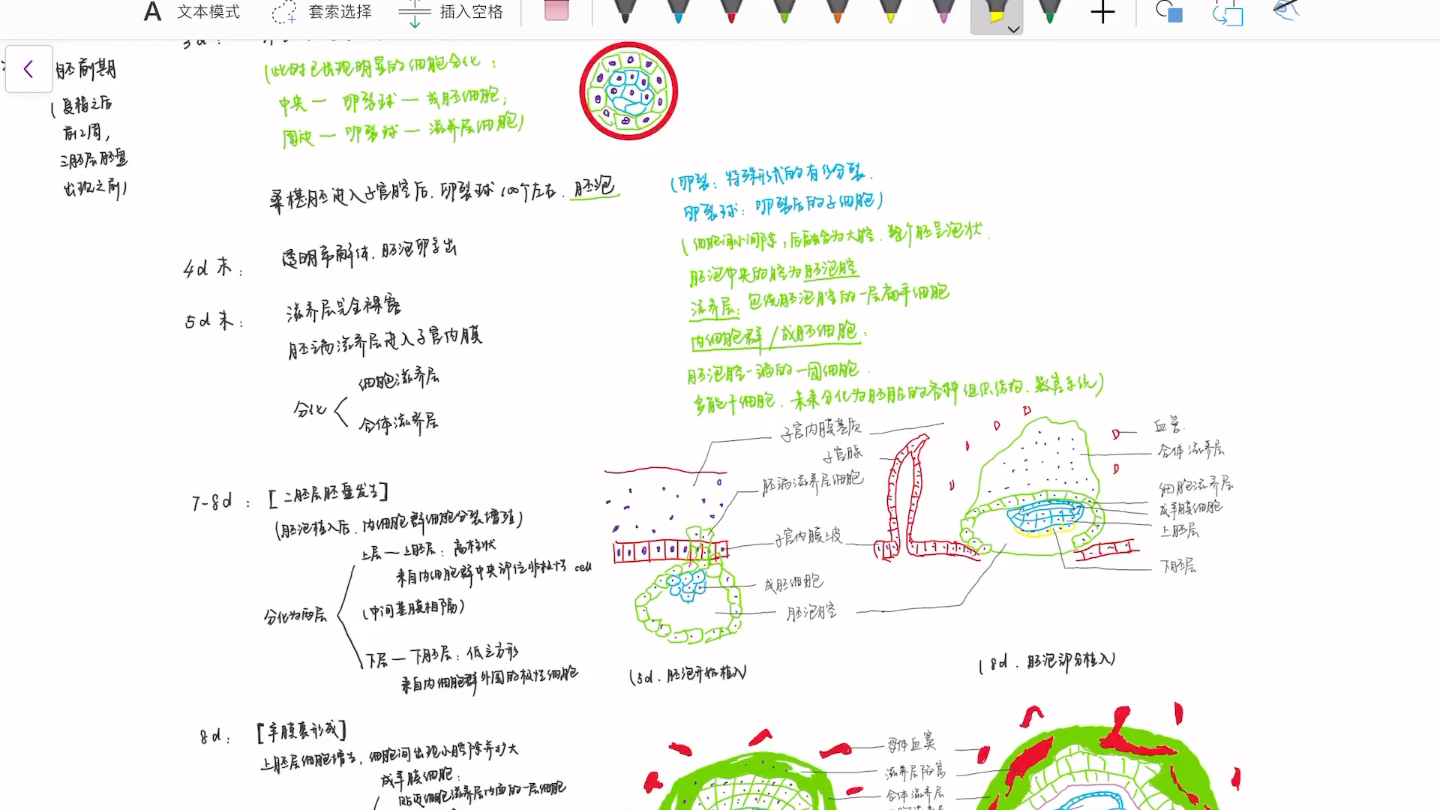 文本模式
套索选择
插入空格
3d:
胚前期
(受精之后
前2周,
三胚层胚盘
出现之前)
(此时已出现明显的细胞分化:
中央一 卵裂球 — 成胚细胞;
周边 — 卵裂球 — 滋养层细胞)
桑椹胚进入子宫腔后, 卵裂球100个左右. 胚泡
(卵裂: 特殊形式的有丝分裂.
卵裂球: 卵裂后的子细胞)
(细胞间小间隙, 后融合为大腔. 整个胚呈泡状.
胚泡中央的腔为胚泡腔
滋养层: 包绕胚泡腔的一层扁平细胞
内细胞群/成胚细胞.
胚泡腔一端的一团细胞.
多能干细胞. 未来分化为胚胎的各种组织结构. 器官系统)
4d末:
透明带解体. 胚泡孵出
5d末:
滋养层完全裸露
胚端滋养层进入子宫内膜
分化
细胞滋养层
合体滋养层
7-8d:
[二胚层胚盘发生]
(胚泡植入后, 内细胞群细胞分裂增殖)
分化为两层
上层 — 上胚层: 高柱状
来自内细胞群中央部位非极性 cell
(中间基膜相隔)
下层 — 下胚层: 低立方形
来自内细胞群外围的极性细胞
子宫内膜基质
子宫腺
胚端滋养层细胞
子宫内膜上皮
成胚细胞
胚泡腔
血管
合体滋养层
细胞滋养层
成羊膜细胞
上胚层
下胚层
(5d. 胚泡开始植入)
(8d. 胚泡部分植入)
8d:
[羊膜囊形成]
上胚层细胞增多, 细胞间出现小腔隙并扩大
成羊膜细胞:
贴近细胞滋养层内面的一层细胞
母体血窦
滋养层陷窝
合体滋养层